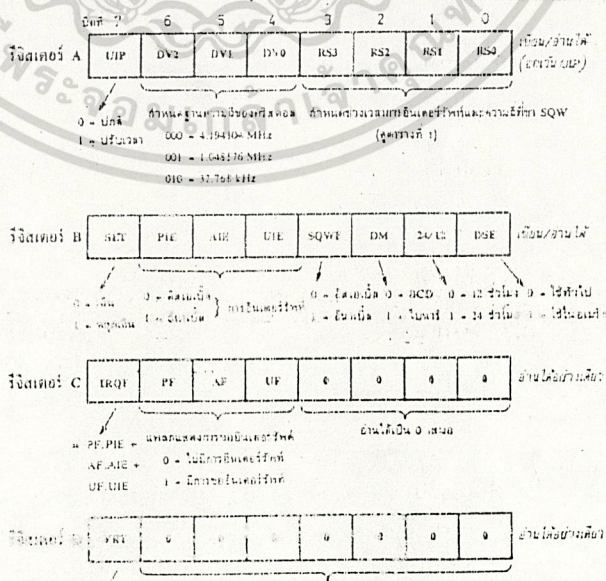 บิตที่ 7 6 5 4 3 2 1 0
รีจิสเตอร์ A UIP DV2 DV1 DV0 RS3 RS2 RS1 RS0 เขียน/อ่านได้
(ยกเว้น UIP)
0 = ปกติ
1 = ปรับเวลา
กำหนดฐานความถี่ของคริสตอล
000 = 4.194304 MHz
001 = 1.048576 MHz
010 = 32.768 kHz
กำหนดช่วงเวลาการอินเตอร์รัพท์และความถี่ที่ขา SQW
(ดูตารางที่ 1)
รีจิสเตอร์ B SET PIE AIE UIE SQWE DM 24/12 DSE เขียน/อ่านได้
0 = เดิน
1 = หยุดเดิน
0 = ดิสเอเบิ้ล
1 = อีนาเบิ้ล
การอินเตอร์รัพท์
0 = ดิสเอเบิ้ล
1 = อีนาเบิ้ล
0 = BCD
1 = ไบนารี
0 = 12 ชั่วโมง
1 = 24 ชั่วโมง
0 = ใช้ทั่วไป
1 = ใช้ในอเมริกา
รีจิสเตอร์ C IRQF PF AF UF 0 0 0 0 อ่านได้อย่างเดียว
= PF.PIE +
AF.AIE +
UF.UIE
แฟลกแสดงการขออินเตอร์รัพท์
0 = ไม่มีการอินเตอร์รัพท์
1 = มีการขออินเตอร์รัพท์
อ่านได้เป็น 0 เสมอ
รีจิสเตอร์ VRT 0 0 0 0 0 0 0 อ่านได้อย่างเดียว